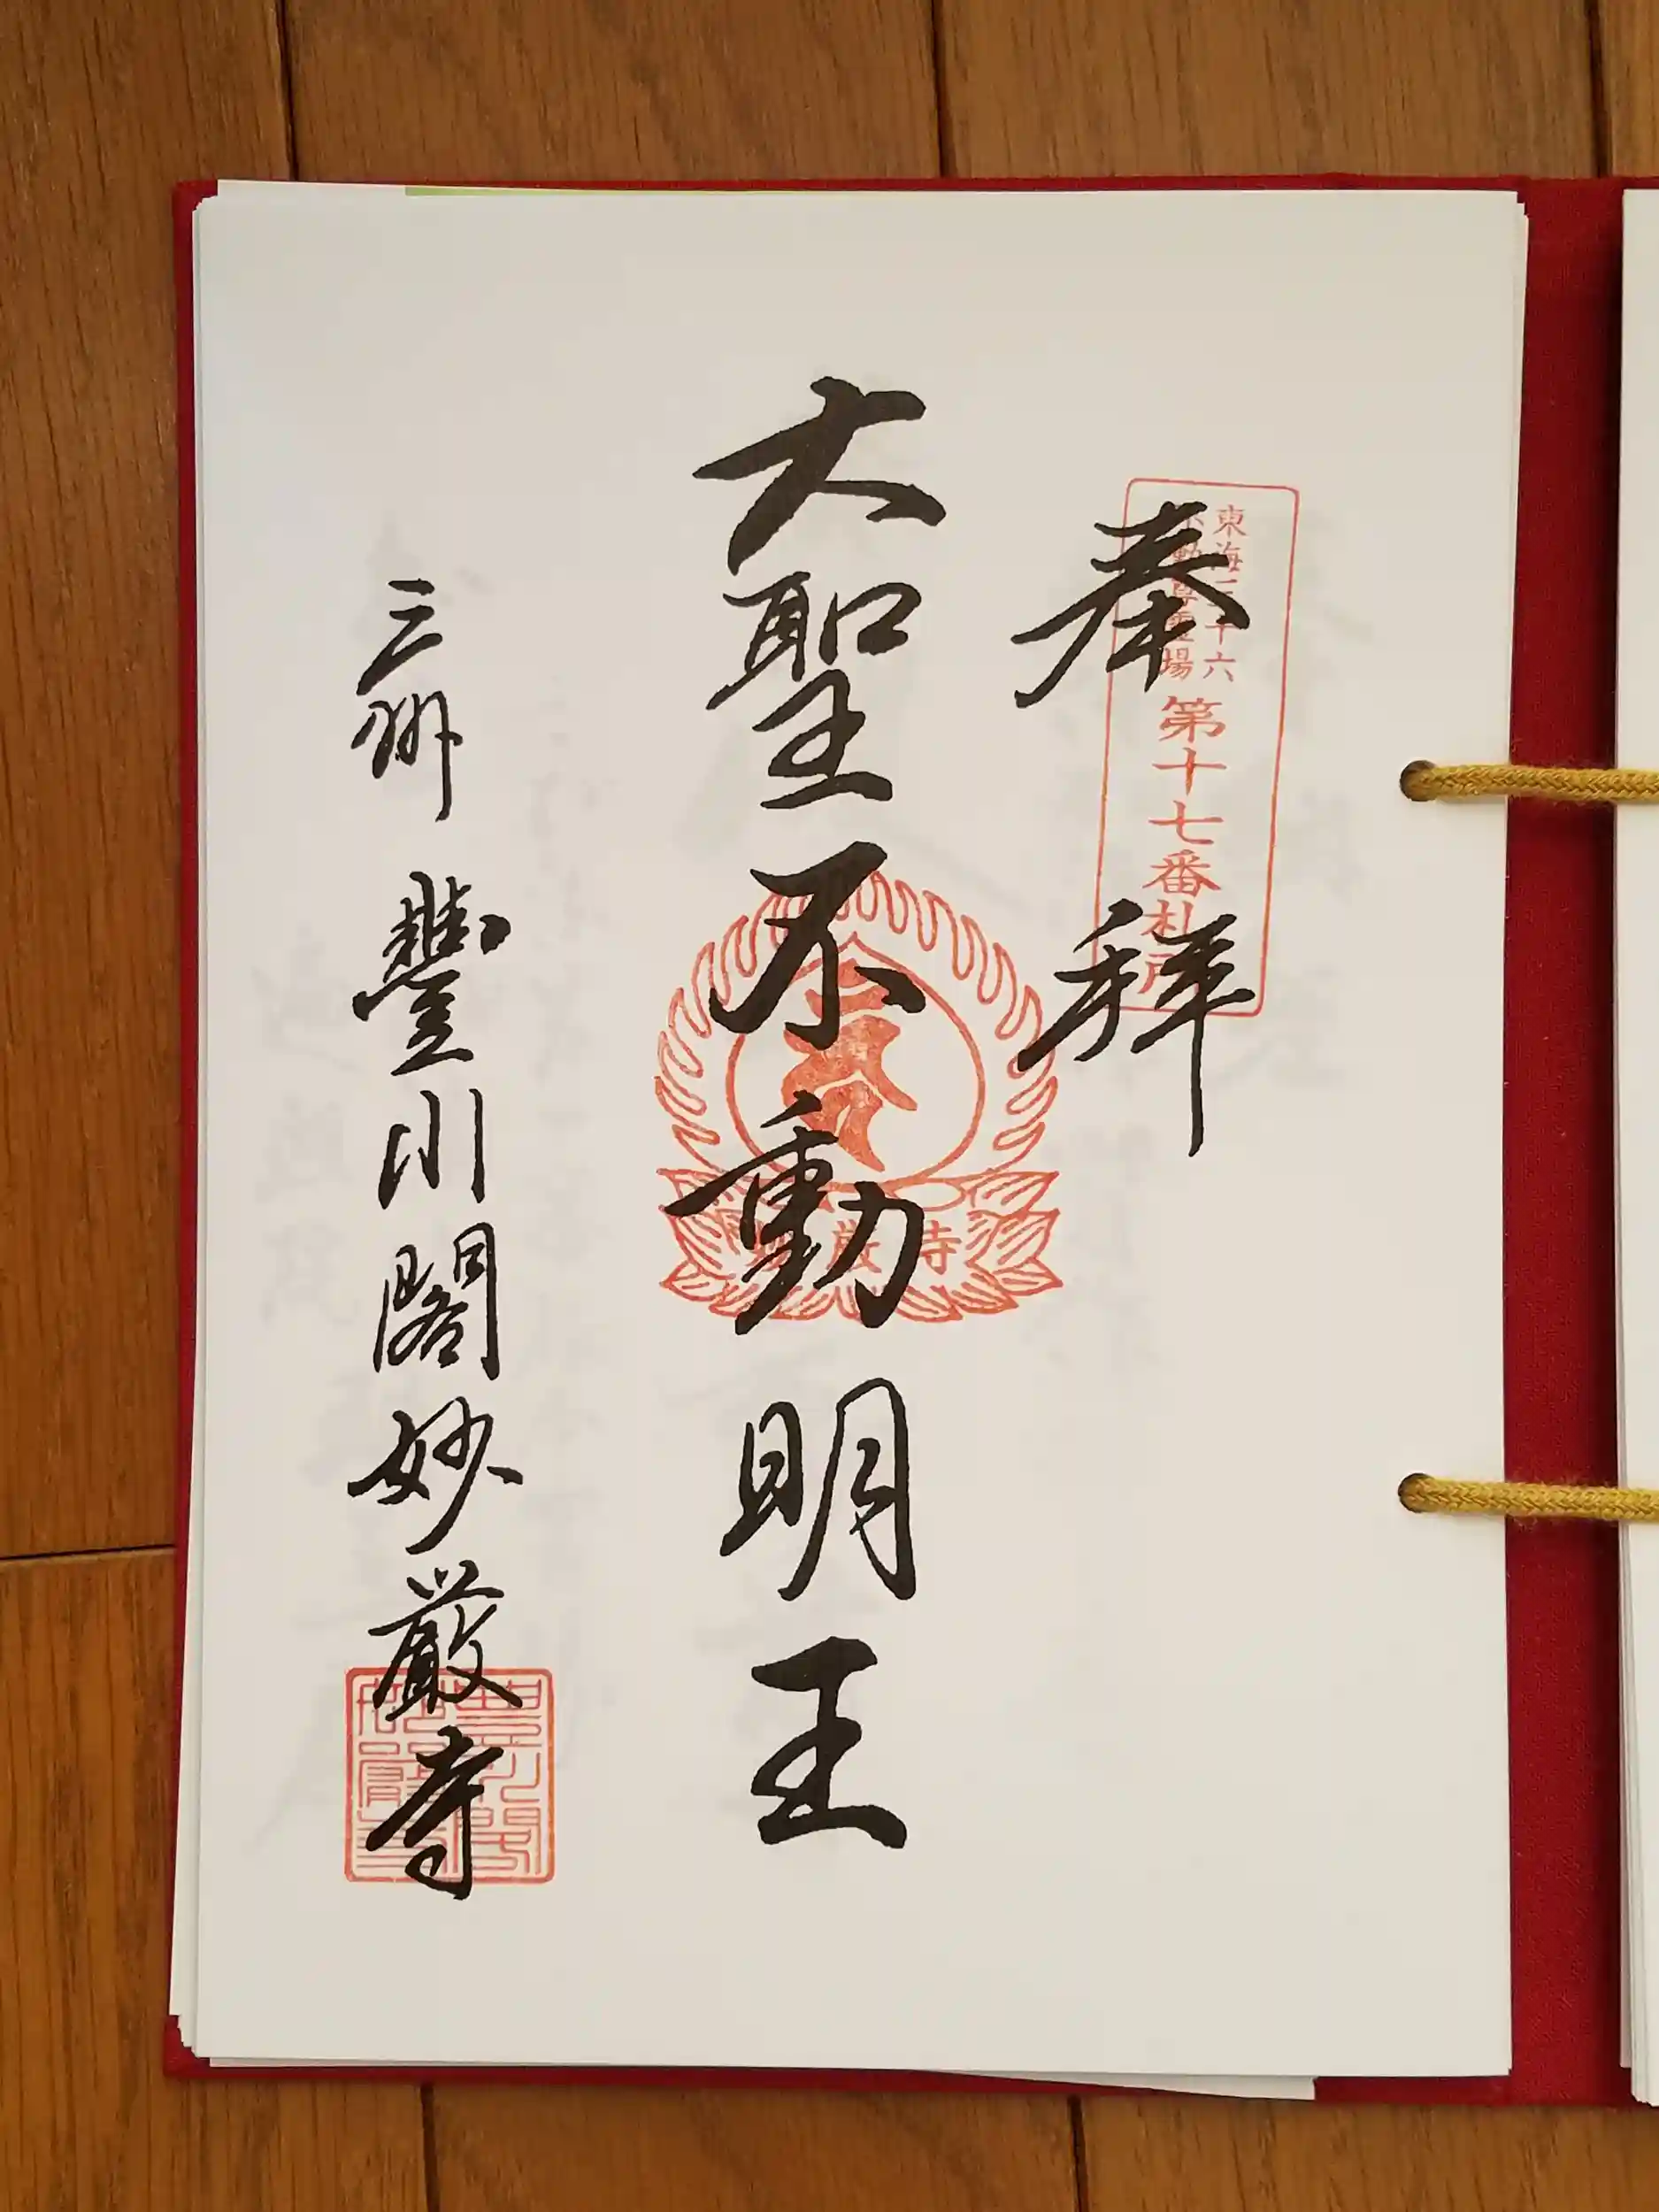 奉拝
東海三十六
不動尊霊場
第十七番札所
大聖不動明王
妙厳寺
三州 豐川閣妙厳寺